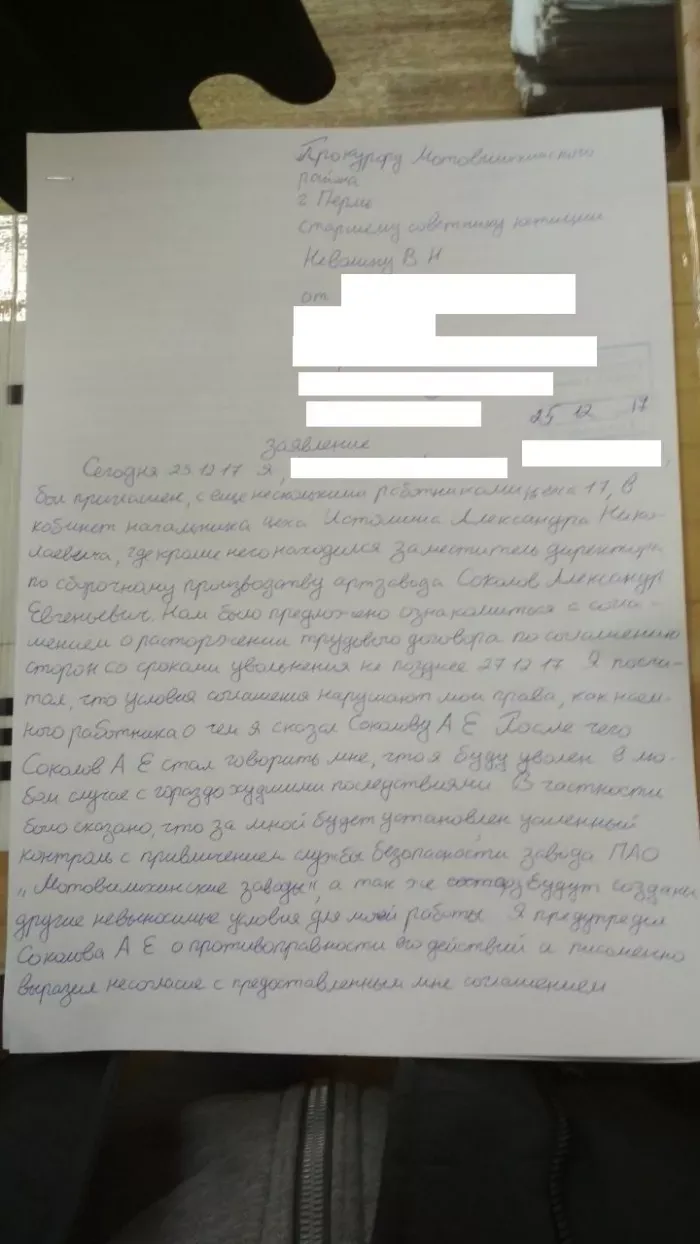 Прокурору Мотовилихинского
района
г Перми
старшему советнику юстиции
Неволину В Н
от
25 12 17
заявление
Сегодня 25 12 17 Я,
был приглашен, с еще несколькими работниками цеха 17, в
кабинет начальника цеха Истомина Александра Нико-
лаевича, где кроме него находился заместитель директора
по сборочному производству артзавода Соколов Александр
Евгеньевич. Нам было предложено ознакомиться с согла-
шением о расторжении трудового договора по соглашению
сторон со сроками увольнения не позднее 27 12 17 Я посчи-
тал, что условия соглашения нарушают мои права, как наем-
ного работника о чем я сказал Соколову А Е После чего
Соколов А Е стал говорить мне, что я буду уволен в лю-
бом случае с гораздо худшими последствиями В частности
было сказано, что за мной будет установлен усиленный
контроль с привлечением службы безопасности завода ПАО
„Мотовилихинские заводы", а так же будут созданы
другие невыносимые условия для моей работы Я предупредил
Соколова А Е о противоправности его действий и письменно
выразил несогласие с предоставленным мне соглашением